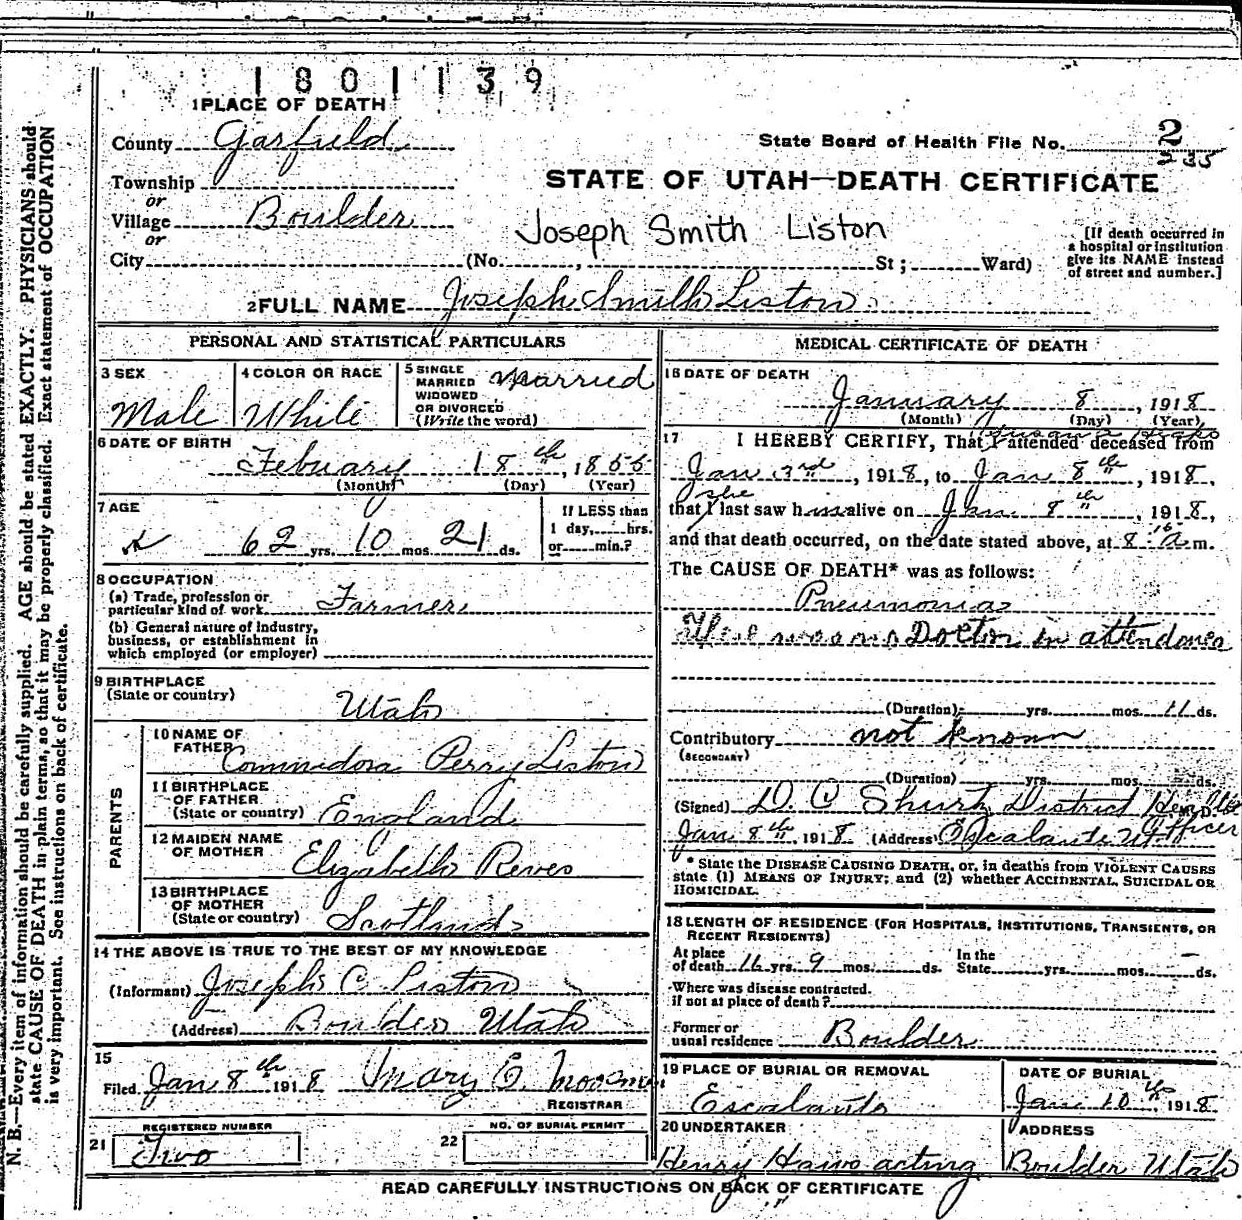 1801139
1 PLACE OF DEATH
County Garfield
State Board of Health File No. 2
235
Township
or
Village Boulder
or
City (No. , St ; Ward)
STATE OF UTAH—DEATH CERTIFICATE
Joseph Smith Liston
[If death occurred in
a hospital or institution
give its NAME instead
of street and number.]
2 FULL NAME Joseph Smith Liston
PERSONAL AND STATISTICAL PARTICULARS
3 SEX
Male
4 COLOR OR RACE
White
5 SINGLE
MARRIED
WIDOWED
OR DIVORCED
(Write the word)
Married
6 DATE OF BIRTH
Febuary 18th, 1855
(Month) (Day) (Year)
7 AGE
62 yrs. 10 mos. 21 ds.
If LESS than
1 day, hrs.
or min.?
8 OCCUPATION
(a) Trade, profession or
particular kind of work Farmer
(b) General nature of Industry,
business, or establishment in
which employed (or employer)
9 BIRTHPLACE
(State or country)
Utah
PARENTS
10 NAME OF
FATHER
Commidora Perry Liston
11 BIRTHPLACE
OF FATHER
(State or country) England
12 MAIDEN NAME
OF MOTHER
Elizabeth Reves
13 BIRTHPLACE
OF MOTHER
(State or country) Scotland
14 THE ABOVE IS TRUE TO THE BEST OF MY KNOWLEDGE
(Informant) Joseph C Liston
(Address) Boulder Utah
15
Filed Jan 8th 1918 Mary E. Moosman
REGISTRAR
21
REGISTERED NUMBER
Two
22
NO. OF BURIAL PERMIT
MEDICAL CERTIFICATE OF DEATH
16 DATE OF DEATH
January 8, 1918
(Month) (Day) (Year)
17 I HEREBY CERTIFY, That I attended deceased from
Jan 3rd, 1918, to Jan 8th, 1918,
she
that I last saw him alive on Jan 8th, 1918,
and that death occurred, on the date stated above, at 8:15 a m.
The CAUSE OF DEATH* was as follows:
Pneumonia
There was no Docton in attendance
(Duration) yrs. mos. 11 ds.
Contributory not known
(SECONDARY)
(Duration) yrs. mos. ds.
(Signed) D. C Shurtz District Health
Officer
Jan 8th, 1918 (Address) Escalante Ut
* State the DISEASE CAUSING DEATH, or, in deaths from VIOLENT CAUSES
state (1) MEANS OF INJURY; and (2) whether ACCIDENTAL, SUICIDAL OR
HOMICIDAL.
18 LENGTH OF RESIDENCE (FOR HOSPITALS, INSTITUTIONS, TRANSIENTS, OR
RECENT RESIDENTS)
At place
of death 16 yrs. 9 mos. ds.
In the
State yrs. mos. ds.
Where was disease contracted.
if not at place of death?
Former or
usual residence Boulder
19 PLACE OF BURIAL OR REMOVAL
Escalante
DATE OF BURIAL
Jan 10th 1918
20 UNDERTAKER
Henry Haws acting
ADDRESS
Boulder Utah
READ CAREFULLY INSTRUCTIONS ON BACK OF CERTIFICATE
N. B.—Every item of information should be carefully supplied. AGE should be stated EXACTLY. PHYSICIANS should
state CAUSE OF DEATH in plain terms, so that it may be properly classified. Exact statement of OCCUPATION
is very important. See instructions on back of certificate.